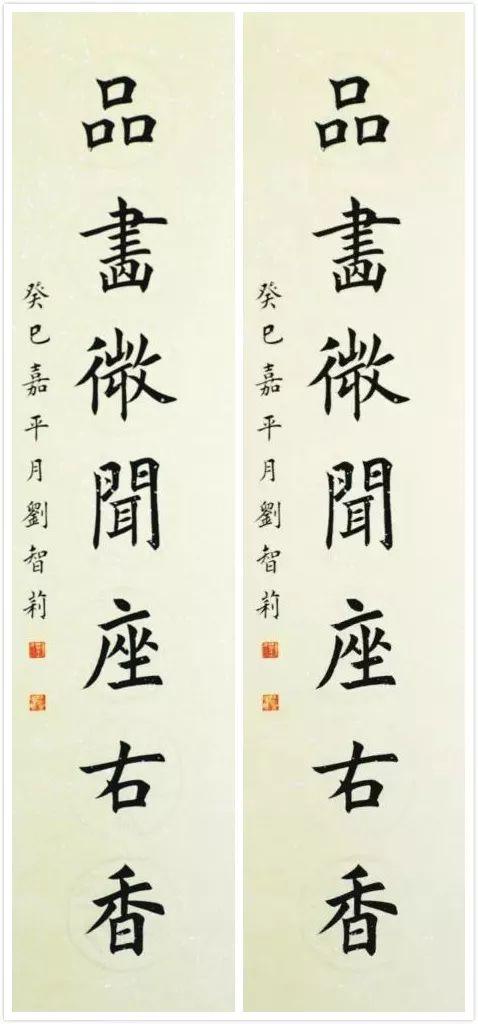 品畫微聞座右香
癸巳嘉平月劉智莉
品畫微聞座右香
癸巳嘉平月劉智莉